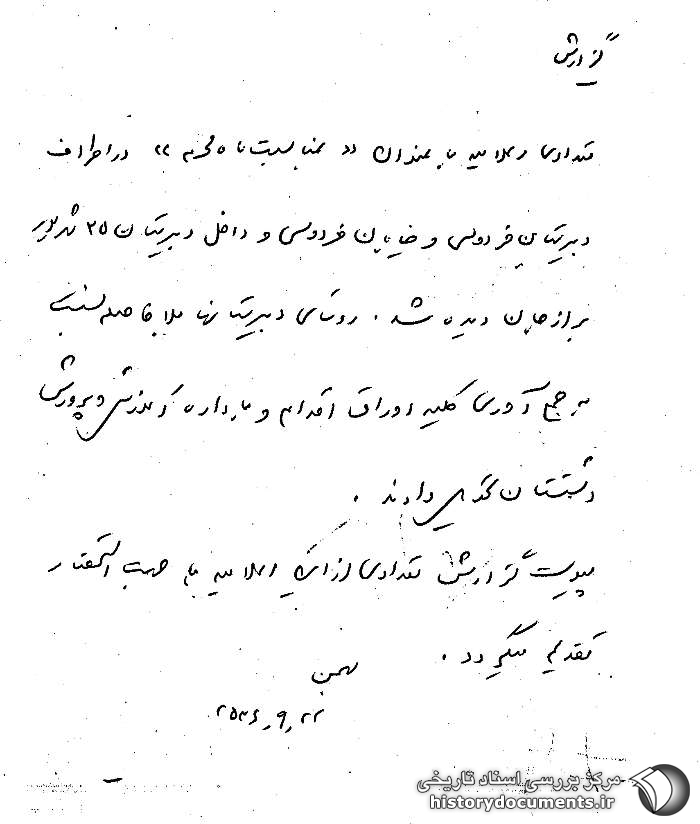 گزارش
تعدادی اعلامیه با عنوان «بمناسبت ماه محرم» در اطراف
دبیرستان فردوسی و خیابان فردوسی و داخل دبیرستان ۲۵ شهریور
برازجان دیده شد. روسای دبیرستانها بلافاصله نسبت
به جمع آوری کلیه اوراق اقدام و باداره آموزش و پرورش
دشتستان تحویل دادند.
پیوست گزارش تعدادی از این اعلامیه ها جهت استحضار
تقدیم میگردد.
بهمن
۲۵۳۶٫۹٫۲۲
مرکز بررسی اسناد تاریخی
historydocuments.ir